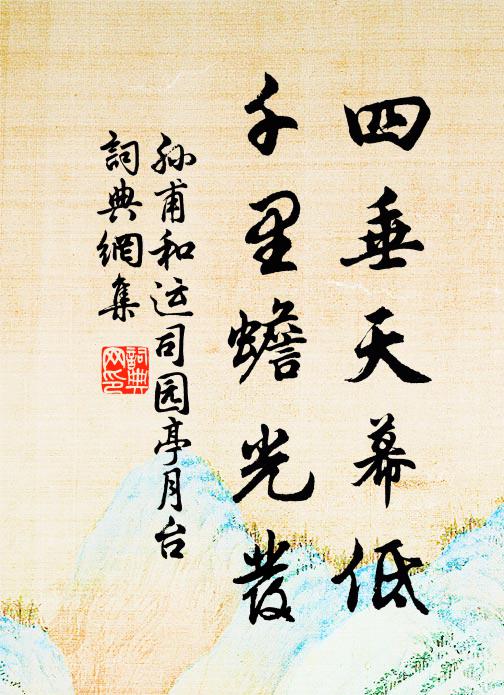 四垂天幕低
千里蟾光發
孙甫和运司园亭月台
詞典網集
詞典網印